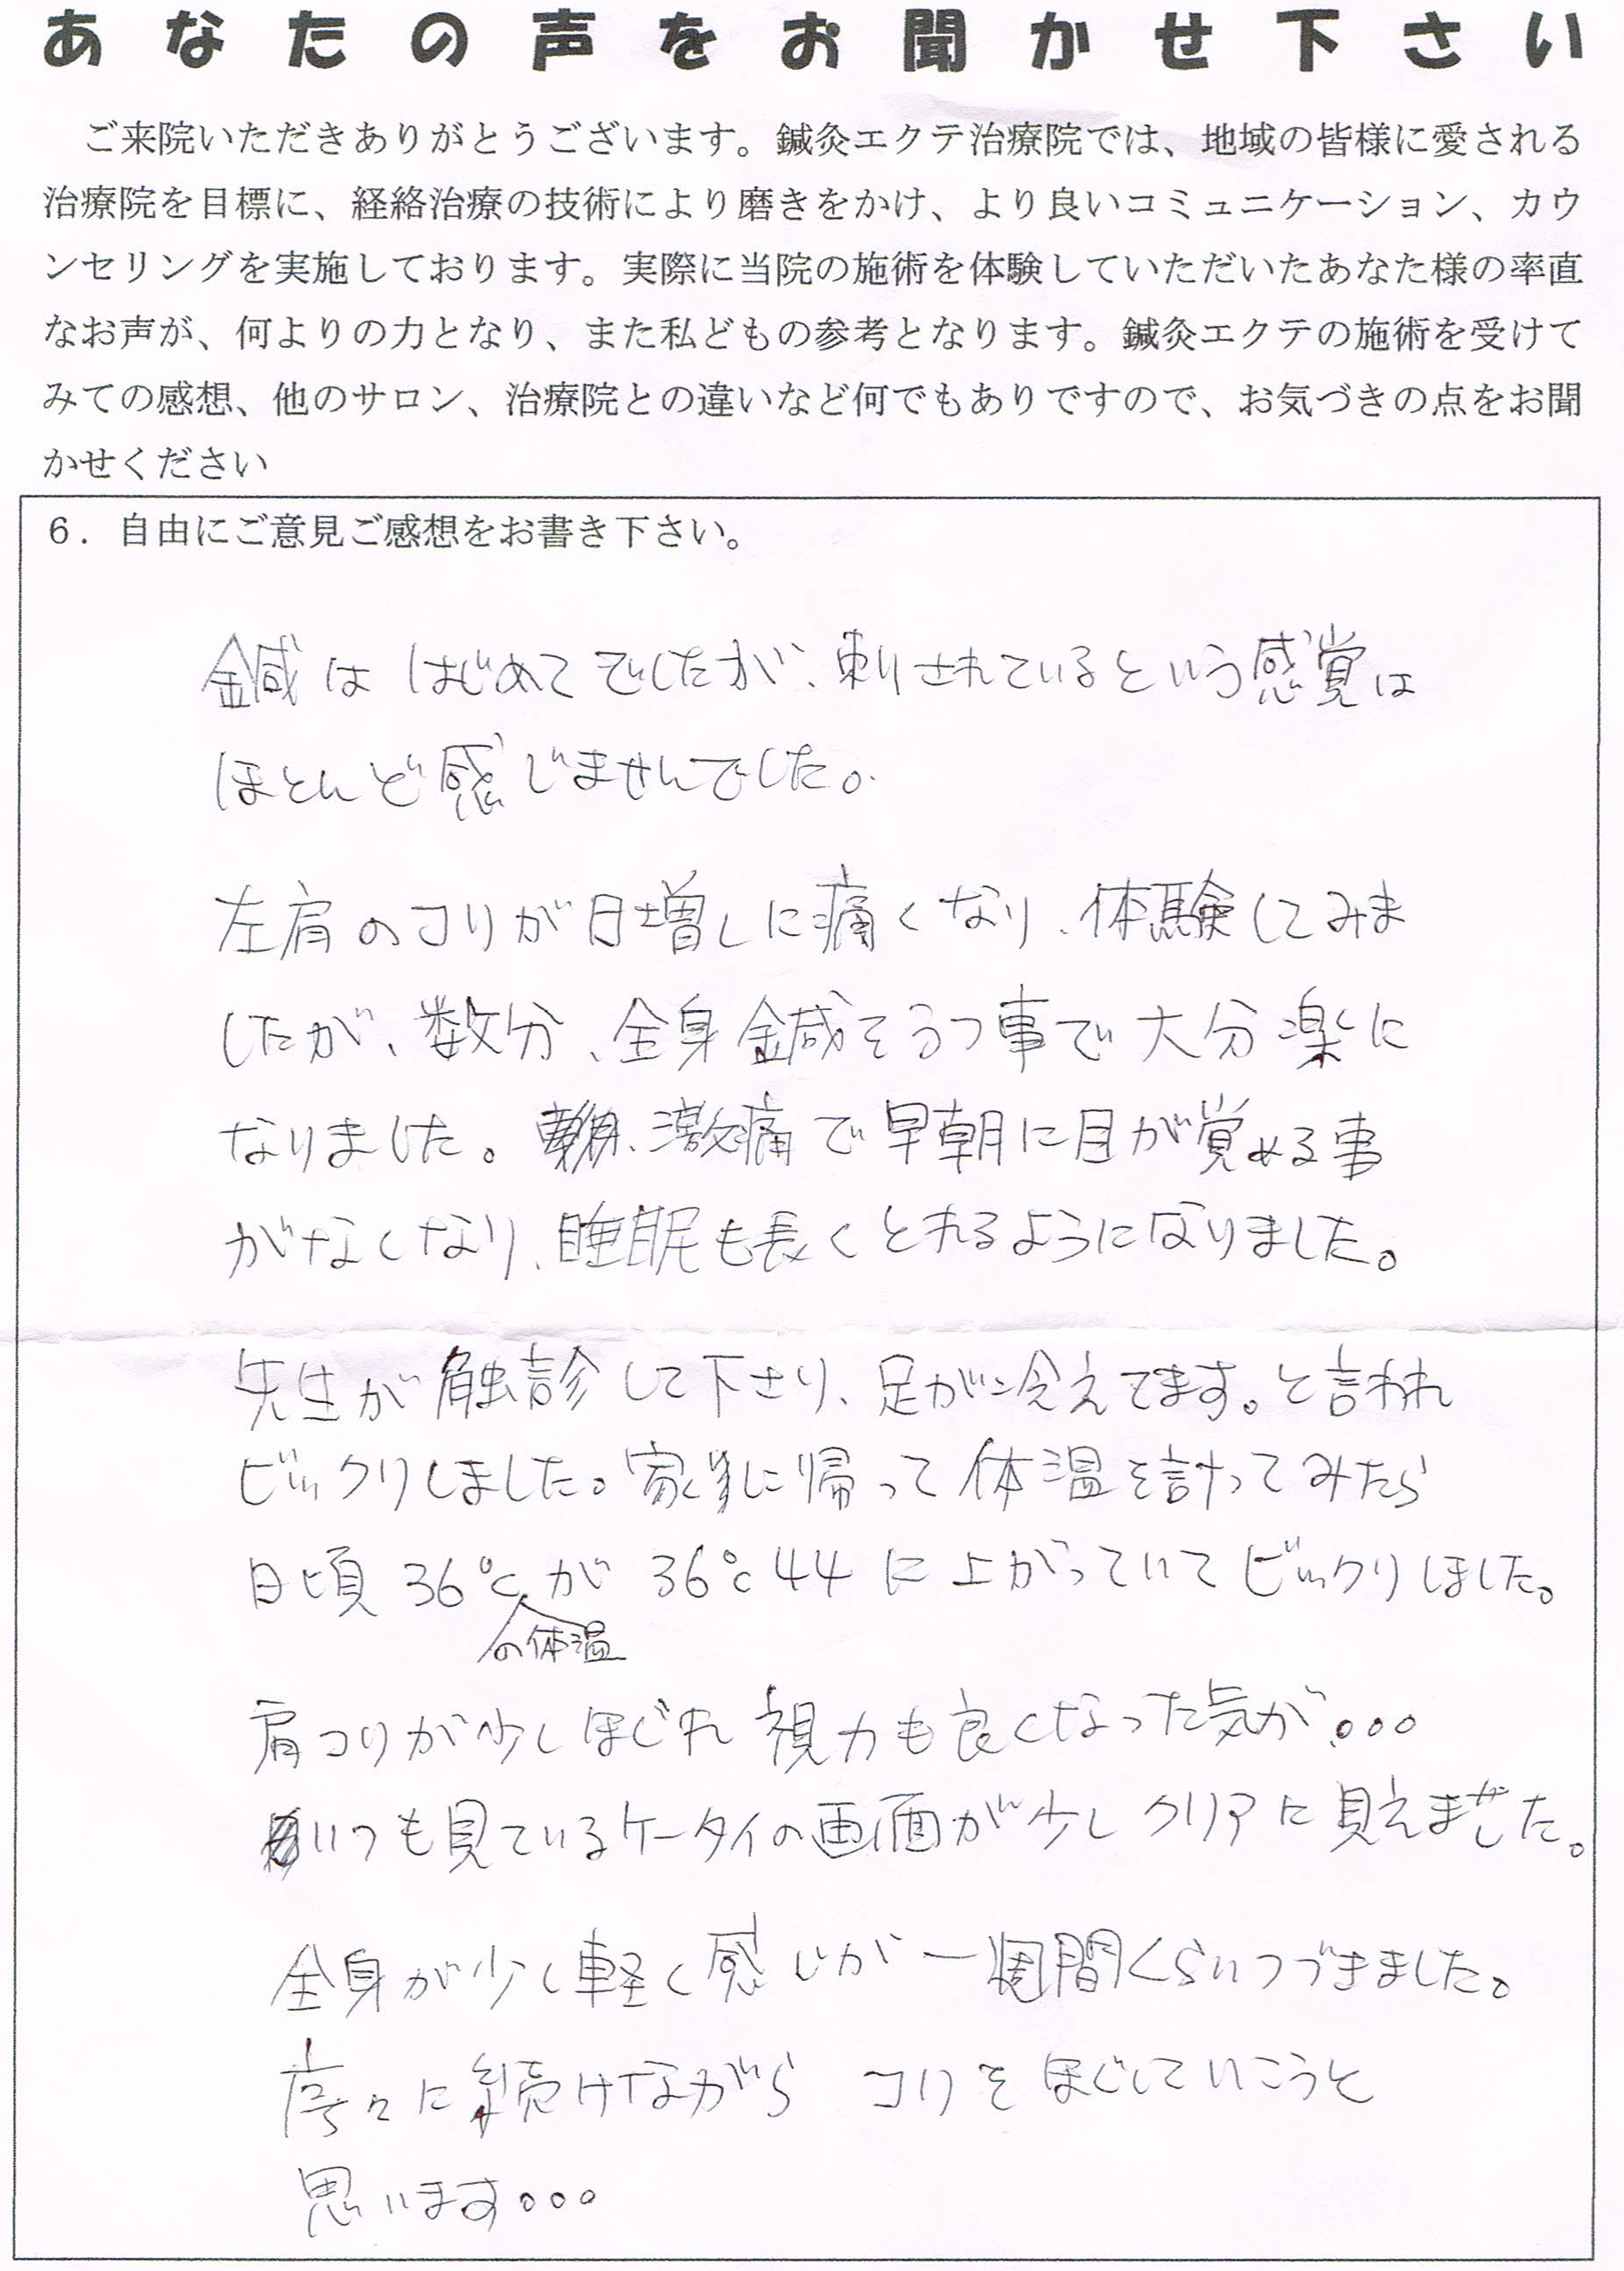 あなたの声をお聞かせ下さい
ご来院いただきありがとうございます。鍼灸エクテ治療院では、地域の皆様に愛される
治療院を目標に、経絡治療の技術により磨きをかけ、より良いコミュニケーション、カウ
ンセリングを実施しております。実際に当院の施術を体験していただいたあなた様の率直
なお声が、何よりの力となり、また私どもの参考となります。鍼灸エクテの施術を受けて
みての感想、他のサロン、治療院との違いなど何でもありですので、お気づきの点をお聞
かせください
６．自由にご意見ご感想をお書き下さい。
鍼は はじめてでしたが、刺されているという感覚は
ほとんど感じませんでした。
左肩のコリが日増しに痛くなり、体験してみま
したが、数分、全身鍼をうつ事で大分楽に
なりました。激痛で早朝に目が覚める事
がなくなり、睡眠も長くとれるようになりました。
先生が触診して下さり、足が冷えてます。と言われ
ビックリしました。家に帰って体温を計ってみたら
日頃36℃が 36℃44に上がっていてビックリしました。
の体温
肩コリが少しほぐれ 視力も良くなった気が。。。
いつも見ているケータイの画面が少しクリアに見えました。
全身が少し軽く感じが一週間くらいつづきました。
序々に続けながら コリをほぐしていこうと
思います。。。